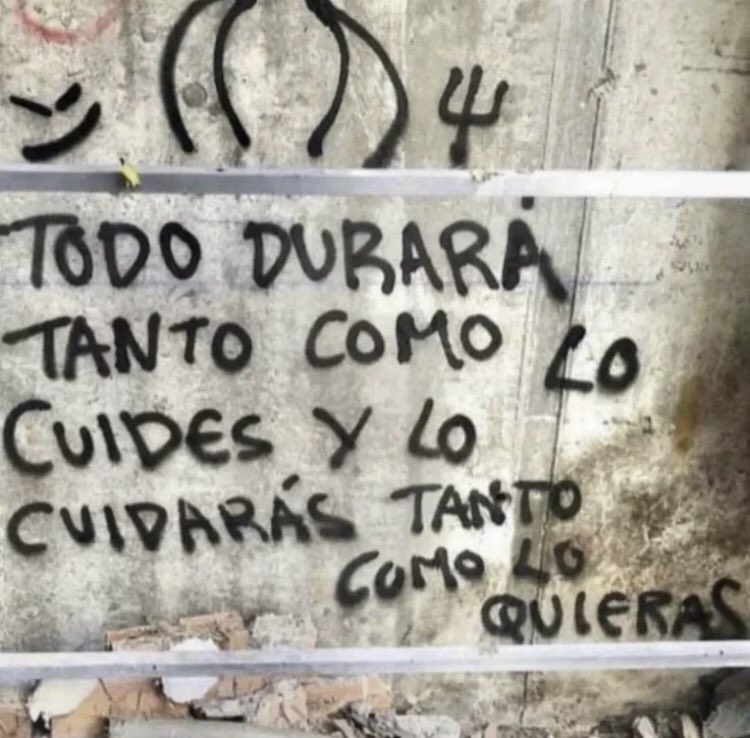 Ψ
TODO DURARÁ
TANTO COMO LO
CUIDES Y LO
CUIDARÁS TANTO
COMO LO
QUIERAS